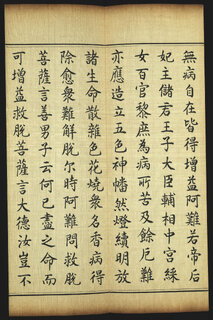 無病自在皆得增益阿難若帝后
妃主儲君王子大臣輔相中宮綵
女百官黎庶為病所苦及餘厄難
亦應造立五色神幡然燈續明放
諸生命散雜色花燒衆名香病得
除愈衆難解脫尓時阿難問救脫
菩薩言善男子云何已盡之命而
可增益救脫菩薩言大德汝豈不